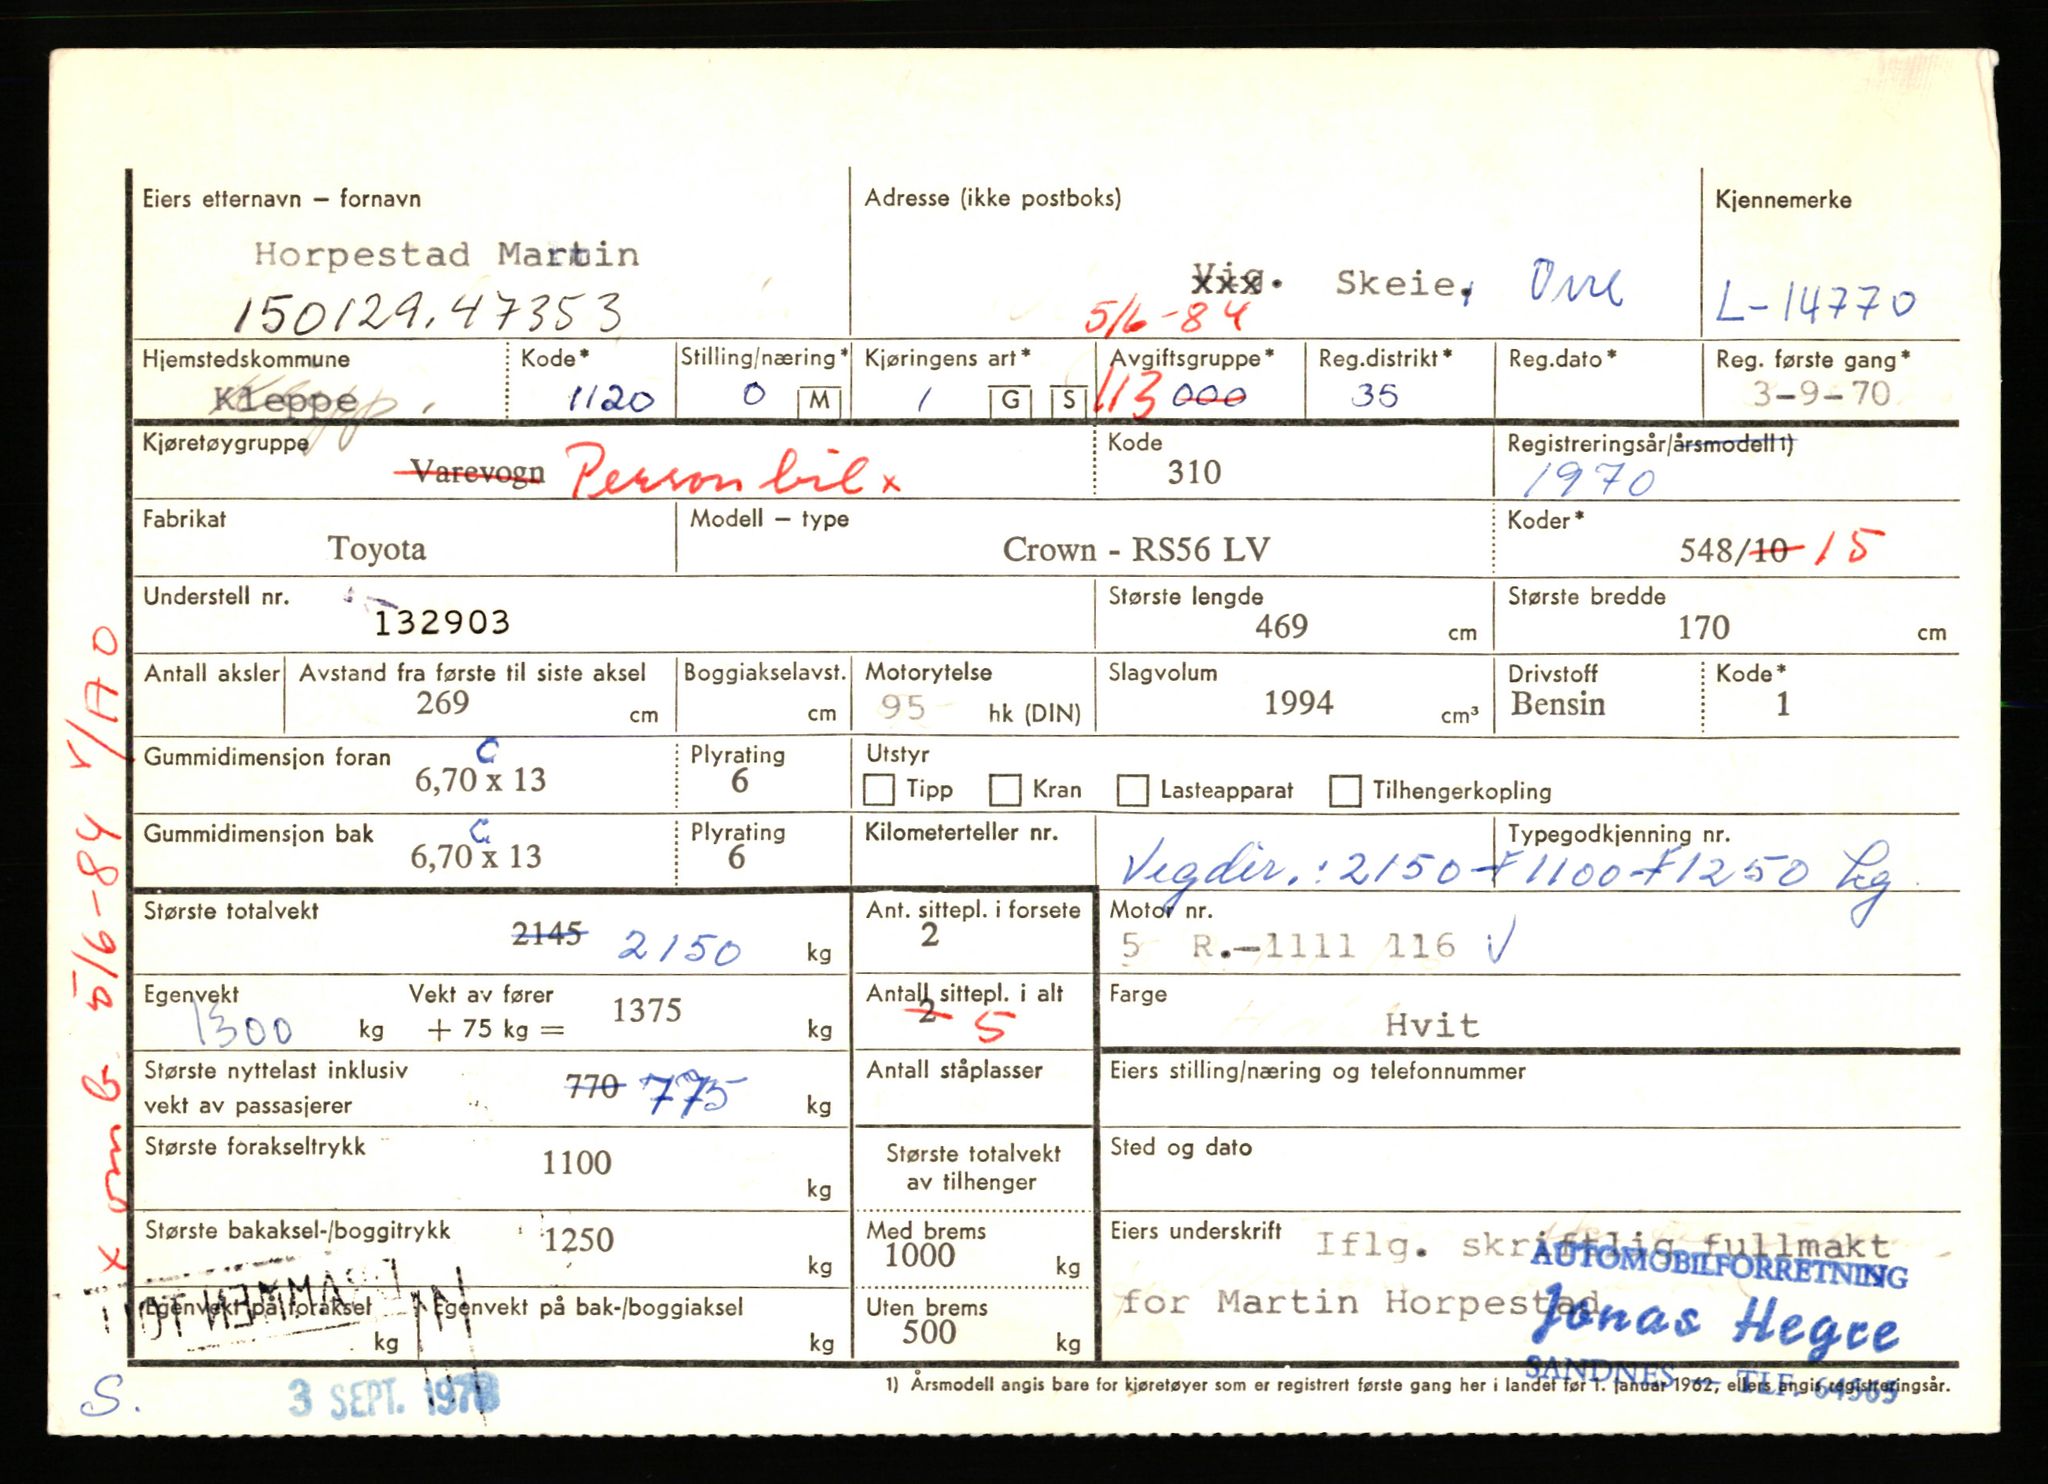 Eiers etternavn – fornavn
Adresse (ikke postboks)
Kjennemerke
Horpestad Martin
Skeie, Orre
150129.47353
5/6-84
L-14770
Hjemstedskommune
Kode*
Stilling/næring*
Kjøringens art*
Avgiftsgruppe*
Reg.distrikt*
Reg.dato*
Reg. første gang*
Kleppe
1120
0 M
1 G S
113 000
35
3-9-70
Kjøretøygruppe
Kode
Registreringsår/årsmodell 1)
Varevogn Personbil x
310
1970
Fabrikat
Modell – type
Koder*
Toyota
Crown - RS56 LV
548/10 15
Understell nr.
Største lengde
Største bredde
132903
469 cm
170 cm
Antall aksler
Avstand fra første til siste aksel
Boggiakselavst.
Motorytelse
Slagvolum
Drivstoff
Kode*
269 cm
cm
95 hk (DIN)
1994 cm³
Bensin
1
Gummidimensjon foran
Plyrating
Utstyr
C
6,70 x 13
6
Tipp
Kran
Lasteapparat
Tilhengerkopling
Gummidimensjon bak
Plyrating
Kilometerteller nr.
Typegodkjenning nr.
C
6,70 x 13
6
Vegdir.: 2150 + 1100 + 1250 kg
Største totalvekt
Ant. sittepl. i forsete
Motor nr.
2145 2150 kg
2
5 R.-1111 116 V
Egenvekt
Vekt av fører
Antall sittepl. i alt
Farge
1300 kg
+ 75 kg =
1375 kg
2 5
Hvit
Største nyttelast inklusiv
vekt av passasjerer
770 775 kg
Antall ståplasser
Eiers stilling/næring og telefonnummer
Største forakseltrykk
1100 kg
Største totalvekt
av tilhenger
Sted og dato
Største bakaksel-/boggitrykk
1250 kg
Med brems
1000 kg
Eiers underskrift
Iflg. skriftlig fullmakt
for Martin Horpestad
AUTOMOBILFORRETNING
Jonas Hegre
SANDNES – TLF. 64565
Egenvekt på foraksel
kg
Egenvekt på bak-/boggiaksel
kg
Uten brems
500 kg
1) Årsmodell angis bare for kjøretøyer som er registrert første gang her i landet før 1. januar 1962, ellers angis registreringsår.
S.
3 SEPT. 1970
x omb 5/6-84